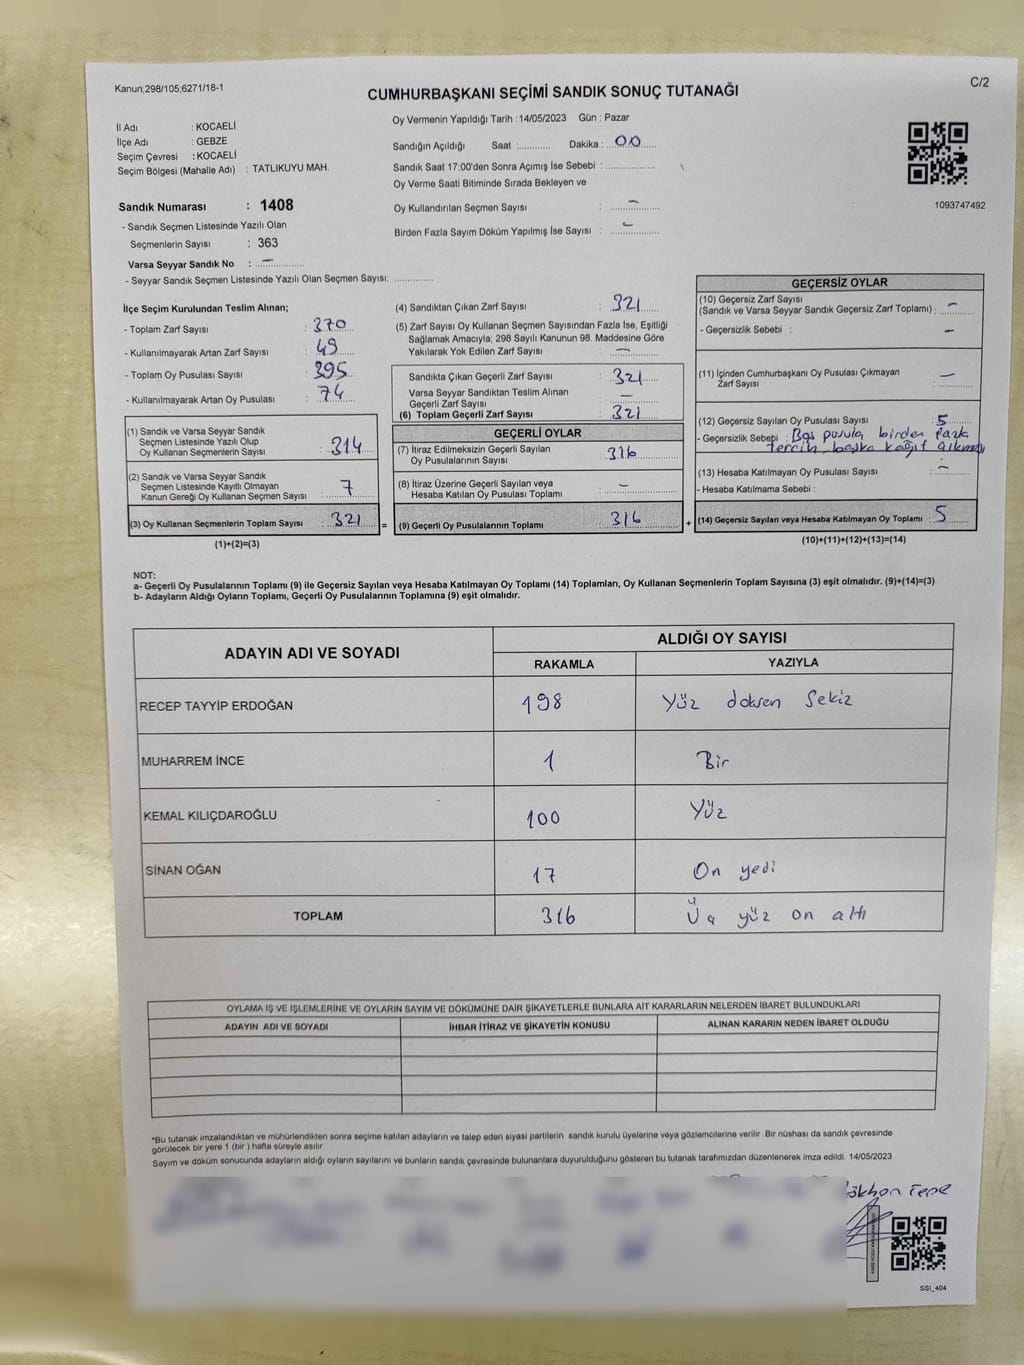 Kanun;298/105;6271/18-1
C/2
CUMHURBAŞKANI SEÇİMİ SANDIK SONUÇ TUTANAĞI
İl Adı : KOCAELİ
İlçe Adı : GEBZE
Seçim Çevresi : KOCAELİ
Seçim Bölgesi (Mahalle Adı) : TATLIKUYU MAH.
Sandık Numarası : 1408
- Sandık Seçmen Listesinde Yazılı Olan
Seçmenlerin Sayısı : 363
Varsa Seyyar Sandık No : –
- Seyyar Sandık Seçmen Listesinde Yazılı Olan Seçmen Sayısı: ............
Oy Vermenin Yapıldığı Tarih : 14/05/2023 Gün : Pazar
Sandığın Açıldığı Saat :.......... Dakika : 00
Sandık Saat 17:00'den Sonra Açımış İse Sebebi : ...............
Oy Verme Saati Bitiminde Sırada Bekleyen ve
Oy Kullandırılan Seçmen Sayısı : –
Birden Fazla Sayım Döküm Yapılmış İse Sayısı : –
1093747492
İlçe Seçim Kurulundan Teslim Alınan;
- Toplam Zarf Sayısı : 370
- Kullanılmayarak Artan Zarf Sayısı : 49
- Toplam Oy Pusulası Sayısı : 395
- Kullanılmayarak Artan Oy Pusulası : 74
(1) Sandık ve Varsa Seyyar Sandık
Seçmen Listesinde Yazılı Olup
Oy Kullanan Seçmenlerin Sayısı : 314
(2) Sandık ve Varsa Seyyar Sandık
Seçmen Listesinde Kayıtlı Olmayan
Kanun Gereği Oy Kullanan Seçmen Sayısı : 7
(3) Oy Kullanan Seçmenlerin Toplam Sayısı : 321
(1)+(2)=(3)
=
(4) Sandıktan Çıkan Zarf Sayısı : 321
(5) Zarf Sayısı Oy Kullanan Seçmen Sayısından Fazla İse, Eşitliği
Sağlamak Amacıyla; 298 Sayılı Kanunun 98. Maddesine Göre
Yakılarak Yok Edilen Zarf Sayısı : –
Sandıkta Çıkan Geçerli Zarf Sayısı : 321
Varsa Seyyar Sandıktan Teslim Alınan
Geçerli Zarf Sayısı : –
(6) Toplam Geçerli Zarf Sayısı : 321
GEÇERLİ OYLAR
(7) İtiraz Edilmeksizin Geçerli Sayılan
Oy Pusulalarının Sayısı : 316
(8) İtiraz Üzerine Geçerli Sayılan veya
Hesaba Katılan Oy Pusulası Toplamı : –
(9) Geçerli Oy Pusulalarının Toplamı : 316
+
GEÇERSİZ OYLAR
(10) Geçersiz Zarf Sayısı
(Sandık ve Varsa Seyyar Sandık Geçersiz Zarf Toplamı) : –
- Geçersizlik Sebebi : –
(11) İçinden Cumhurbaşkanı Oy Pusulası Çıkmayan
Zarf Sayısı : –
(12) Geçersiz Sayılan Oy Pusulası Sayısı : 5
- Geçersizlik Sebebi : Boş pusula, birden fazla
tercih, başka kağıt
(13) Hesaba Katılmayan Oy Pusulası Sayısı : –
- Hesaba Katılmama Sebebi :
(14) Geçersiz Sayılan veya Hesaba Katılmayan Oy Toplamı : 5
(10)+(11)+(12)+(13)=(14)
NOT:
a- Geçerli Oy Pusulalarının Toplamı (9) ile Geçersiz Sayılan veya Hesaba Katılmayan Oy Toplamı (14) Toplamları, Oy Kullanan Seçmenlerin Toplam Sayısına (3) eşit olmalıdır. (9)+(14)=(3)
b- Adayların Aldığı Oyların Toplamı, Geçerli Oy Pusulalarının Toplamına (9) eşit olmalıdır.
ADAYIN ADI VE SOYADI ALDIĞI OY SAYISI
RAKAMLA YAZIYLA
RECEP TAYYİP ERDOĞAN 198 Yüz doksen Sekiz
MUHARREM İNCE 1 Bir
KEMAL KILIÇDAROĞLU 100 Yüz
SİNAN OĞAN 17 On yedi
TOPLAM 316 Üç yüz on altı
OYLAMA İŞ VE İŞLEMLERİNE VE OYLARIN SAYIM VE DÖKÜMÜNE DAİR ŞİKAYETLERLE BUNLARA AİT KARARLARIN NELERDEN İBARET BULUNDUKLARI
ADAYIN ADI VE SOYADI İHBAR İTİRAZ VE ŞİKAYETİN KONUSU ALINAN KARARIN NEDEN İBARET OLDUĞU
*Bu tutanak imzalandıktan ve mühürlendikten sonra seçime katılan adayların ve talep eden siyasi partilerin sandık kurulu üyelerine veya gözlemcilerine verilir. Bir nüshası da sandık çevresinde
görülecek bir yere 1 (bir) hafta süreyle asılır.
Sayım ve döküm sonucunda adayların aldığı oyların sayılarını ve bunların sandık çevresinde bulunanlara duyurulduğunu gösteren bu tutanak tarafımızdan düzenlenerek imza edildi. 14/05/2023
ökhan Tepe
SSİ_404